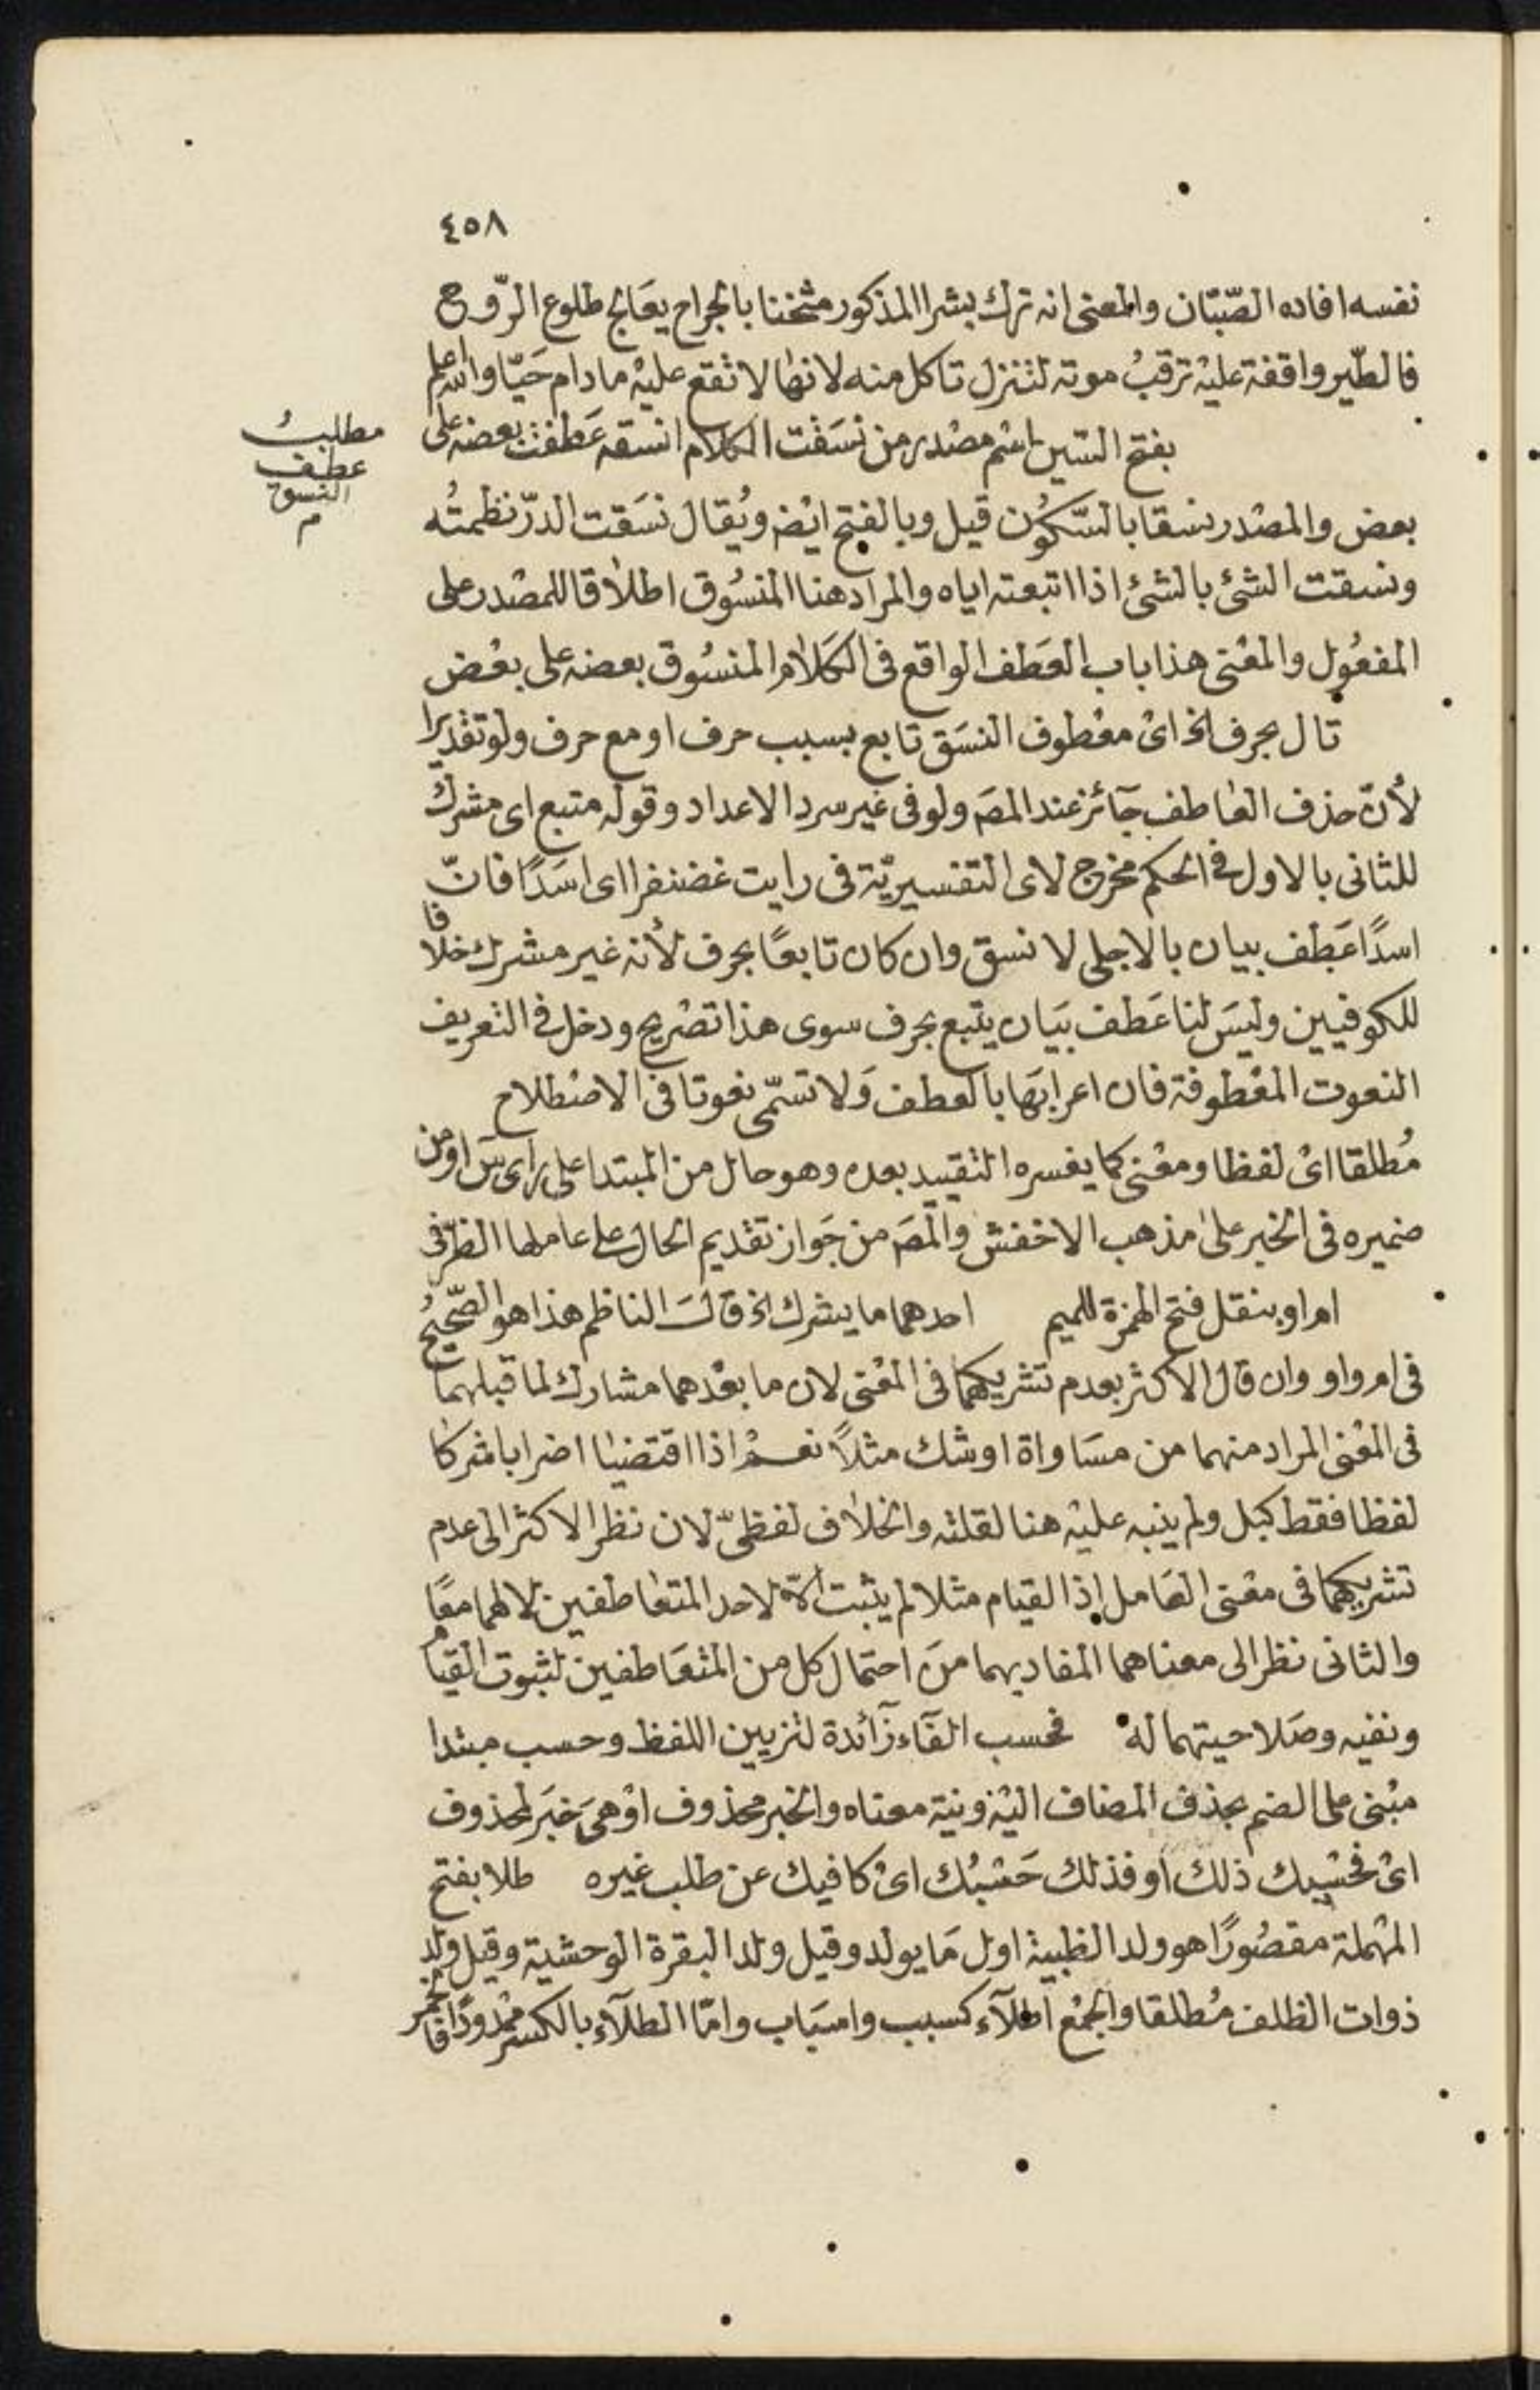 ٤٥٨
نفسه افاده الصّبّان والمعنى انه ترك بشرا المذكور مثخنا بالجراح يعَالج طلوع الرّوح
فالطّير واقفة عليْه ترقبُ موته لتنزل تاكل منه لانها لا تقع عليْه مادام حَيّا والله اعلم
بفتح السّين اسْم مصْدر من نسَقت الكلام انسقه عَطفت بعضه على
مطلبُ
عطف
النسق
م
بعض والمصْدر نسقا بالسّكوُن قيل وبالفتح ايْضه ويُقال نسَقت الدرّ نظمتُه
ونسقت الشئ بالشئ اذا اتبعته اياه والمراد هنا المنسُوق اطلاقا للمصْدر على
المفعُول والمعْنى هذا باب العَطف الواقع فى الكَلام المنسُوق بعضه على بعْض
تال بحرف الخ اىْ معْطوف النسَق تابع بسبب حرف او مع حرف ولو تقديرا
لأنّ حذف العاطف جَآئز عند المصَ ولو فى غير سرد الاعداد وقوله متبع اى مشرك
للثانى بالاول فى الحكم مخرج لاى التفسيريّة فى رايت غضنفرا اى اسَدًا فانّ
اسدًا عَطف بيان بالاجلى لا نسق وان كان تابعًا بحرف لأنه غير مشرك خلافا
للكوفيين وليسَ لنا عَطف بيَان يتبع بحرف سوى هذا تصْريح ودخل فى التعريف
النعوت المعْطوفة فان اعرابهَا بالعطف وَلا تسمّى نعوتا فى الاصْطلاح
مُطلقا اىْ لفظا ومعْنى كما يفسره التقييد بعده وهو حال من المبتدا على راى سَ او من
ضميره فى الخبر على مذهب الاخفش والمصَ من جَواز تقديم الحال على عاملها الظرفى
ام او بنقل فتح الهمزة للميم احدهما ما يشرك الخ قالَ الناظم هذا هو الصّحيحُ
فى ام واو وان قال الاكثر بعدم تشريكهما فى المعْنى لان ما بعْدهما مشارك لما قبلهما
فى المعْنى المراد منهما من مسَاواة او شك مثلاً نعم اذا اقتضيا اضرابا شركا
لفظا فقط كبل ولم ينبه عليْه هنا لقلته والخلاف لفظىّ لان نظر الاكثر الى عدم
تشريكهما فى معْنى العَامل اذ القيام مثلا لم يثبت الآ لاحد المتعَاطفين لا لهما معًا
والثانى نظر الى معناهما المفاد بهما من احتمال كل من المتعَاطفين لثبوت القيام
ونفيه وصَلاحيتهما له فحسب الفَآء زَآئدة لتزيين اللفظ وحسب مبتدا
مبْنى على الضم بحذف المضاف اليْه ونية معناه والخبر محذوف اوْ هىَ خبَر لمحذوف
اىْ فحسْبك ذلك او فذلك حَسْبُك اىْ كافيك عن طلب غيره طلا بفتح
المهْملة مقصُورًا هو ولد الظبية اول مَا يولد وقيل ولد البقرة الوحشية وقيل ولد
ذوات الظلف مُطلقا والجمْع اطلآء كسبب واسبَاب وامّا الطلآء بالكسر ممْدودًا فالخمر